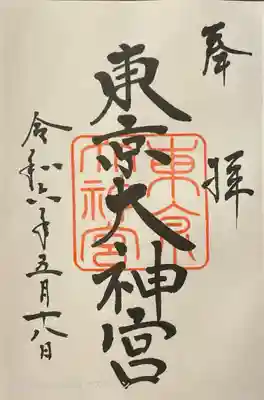 奉拝
東京大神宮
東京大神宮
令和六年五月十八日